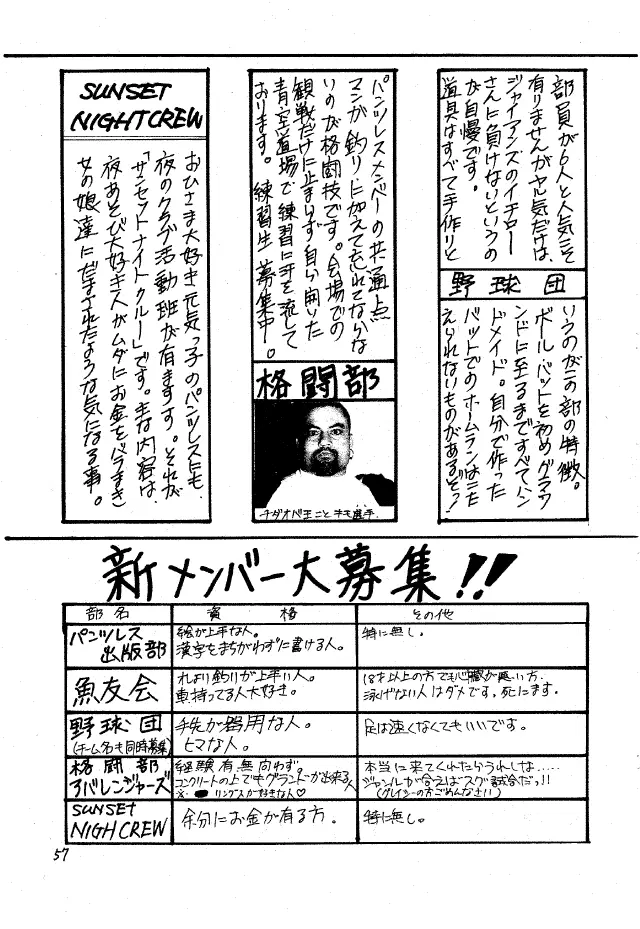 部員が6人と人気こそ
有りませんがヤル気だけは、
ジャイアンズのイチロー
さんに負けないというの
が自慢です。
道具はすべて手作りと
野球団
いうのがこの部の特徴。
ボール、バットを初めグラウ
ンドに至るまですべてハン
ドメイド。自分で作った
バットでのホームランはこた
えられないものがあるぞっ!
パンツレスメンバーの共通点
マンが、釣りに加えて忘れてならな
いのが格闘技です。会場での
観戦だけに止まらず自ら開いた
青空道場で練習に汗を流して
おります。練習生募集中。
格闘部
チダオペ王こと チモ選手
SUNSET
NIGHTCREW
おひさま大好き元気っ子のパンツレスにも
夜のクラブ活動班が有ます。それが
「サンセットナイトクルー」です。主な内容は、
夜あそび大好き人がムダにお金をバラまき
女の娘達にだまされたような気になる事。
新メンバー大募集!!
部名 資格 その他
パンツレス出版部 絵が上手な人。漢字をまちがわずに書ける人。 特に無し。
魚友会 れより釣りが上手い人。車持ってる人大好き。 18才以上の方でも心臓が悪い方、泳げない人はダメです。死にます。
野球団(チーム名も同時募集) 手先が器用な人。ヒマな人。 足は速くなくてもいいです。
格闘部アバレンジャーズ 経験有無問わず。コンクリートの上でもグランドーが出来る人 ※リングスが好きな人♡ 本当に来てくれたらうれしな……ジャンルが合えばスグ試合だっ!!(グレイシーの方ごめんなさい)
SUNSET NIGHCREW 余分にお金が有る方。 特に無し。
57